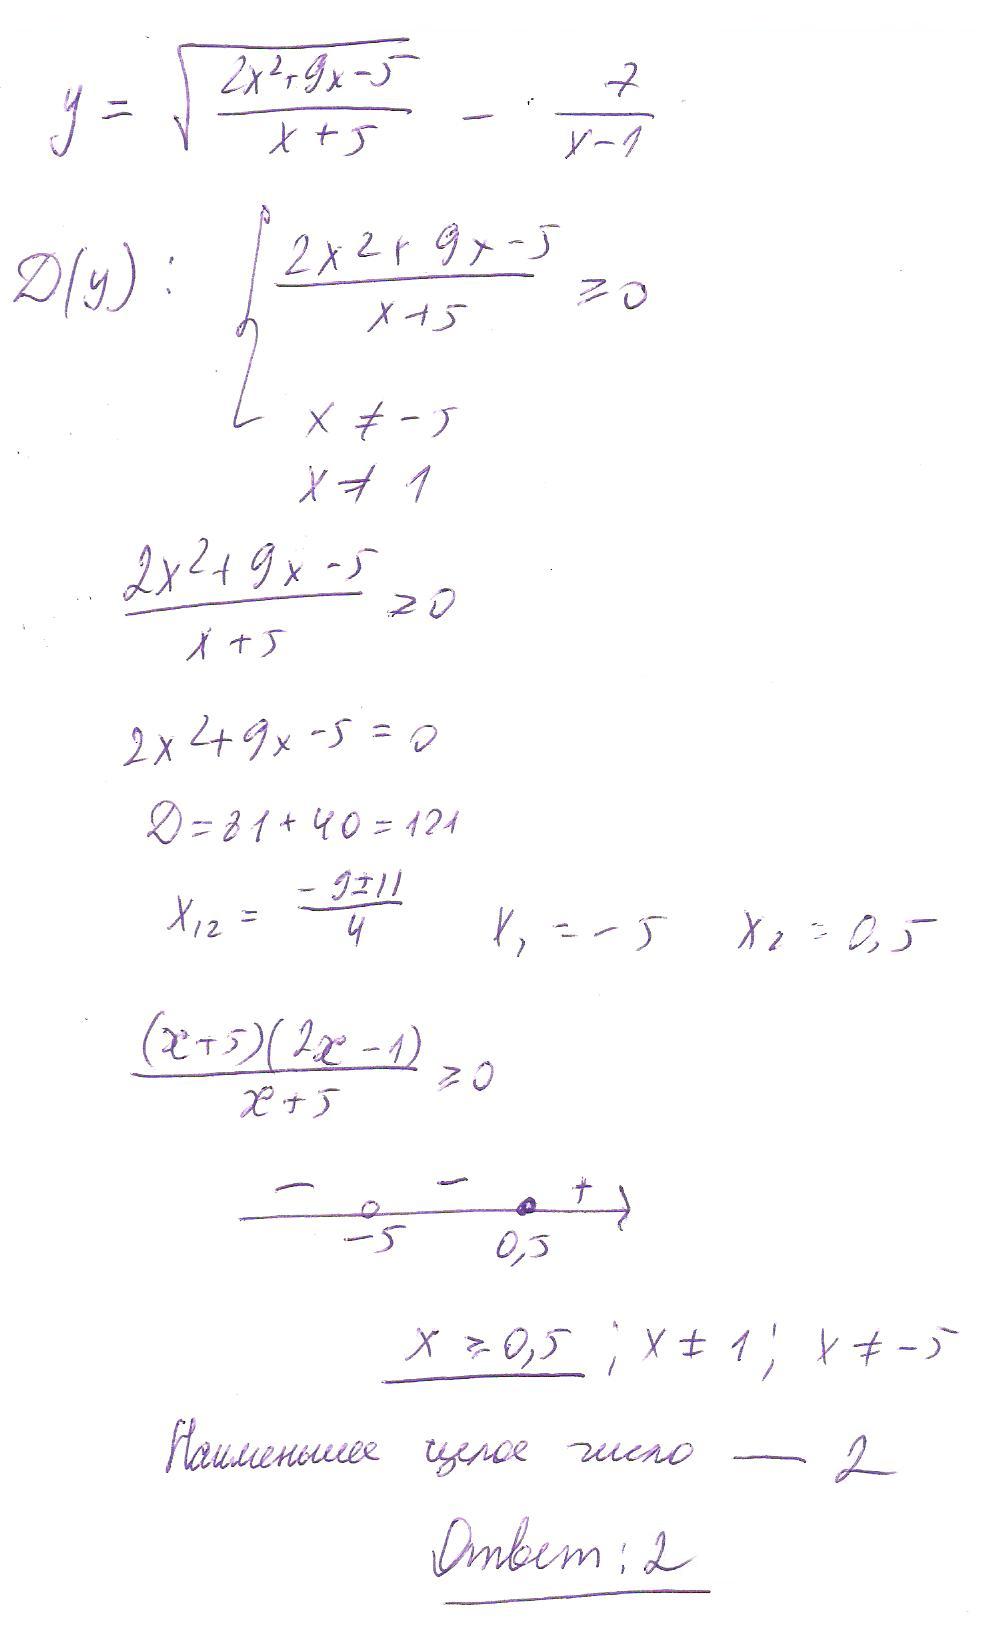 y = √((2x²+9x-5)/(x+5)) - 7/(x-1)
D(y): { (2x²+9x-5)/(x+5) ≥ 0
x ≠ -5
x ≠ 1
(2x²+9x-5)/(x+5) ≥ 0
2x²+9x-5=0
D=81+40=121
x₁₂ = (-9±11)/4 x₁ = -5 x₂ = 0,5
((x+5)(2x-1))/(x+5) ≥ 0
- - +
-5 0,5
x ≥ 0,5 ; x ≠ 1 ; x ≠ -5
Наименьшее целое число — 2
Ответ: 2